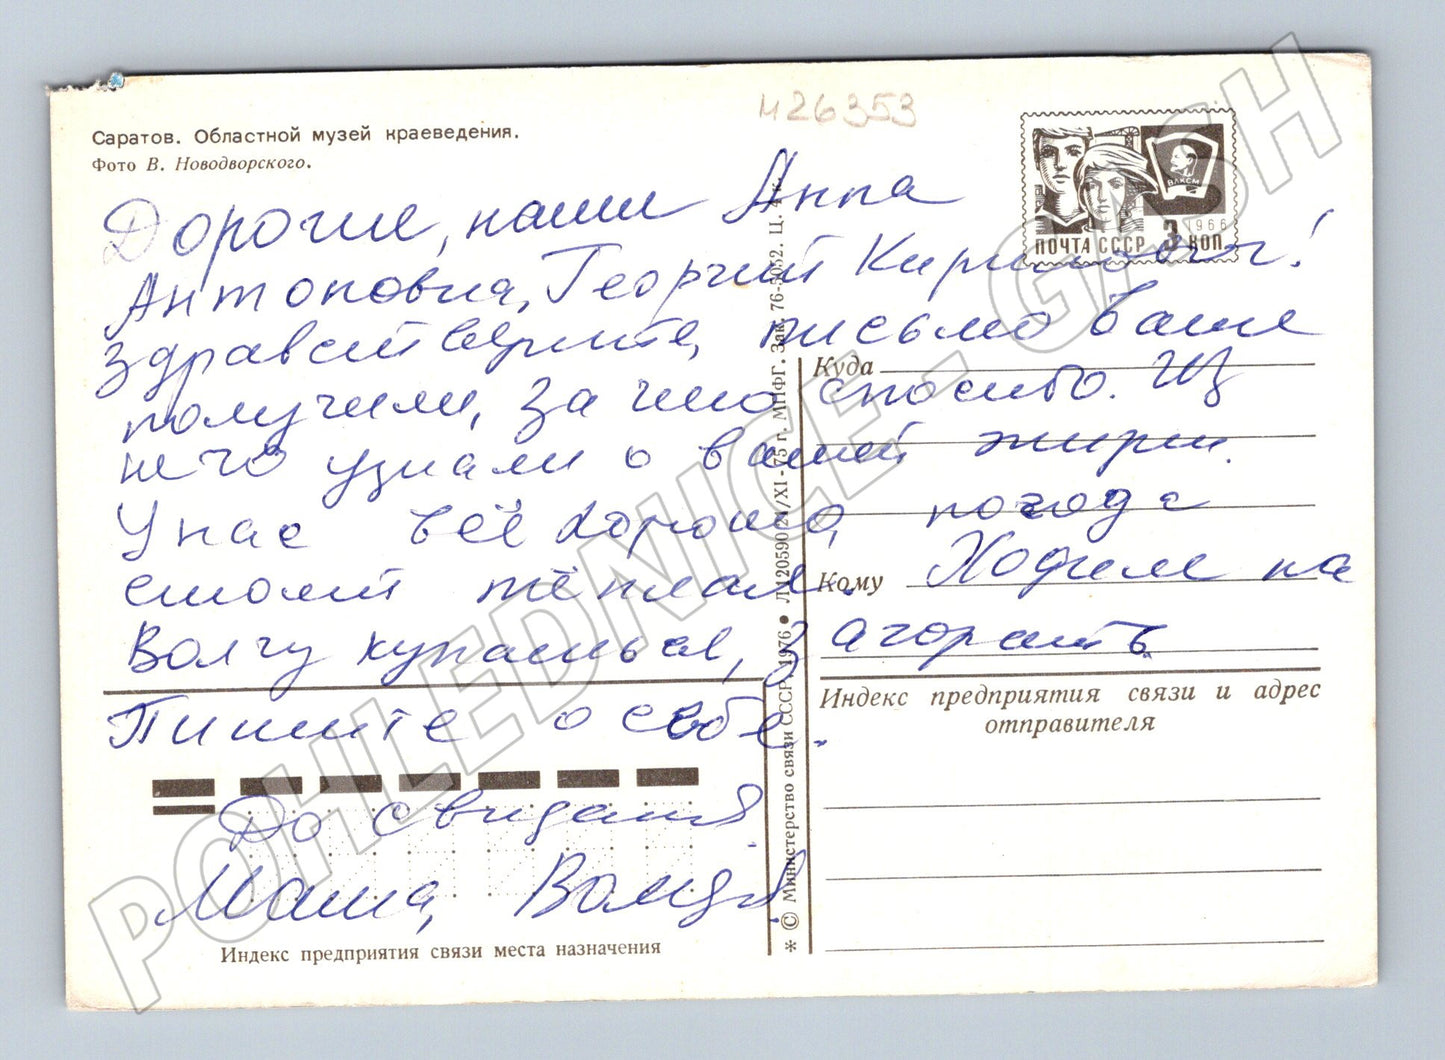 426353
Саратов. Областной музей краеведения.
Фото В. Новодворского.
ВЛКСМ
1966
ПОЧТА СССР 3 КОП
Дорогие, наши Анна
Антоновна, Георгий Кириллович!
здравствуйте, письмо Ваше
получили, за что спосибо. Из
него узнали о вашей жизни.
У нас всё хорошо, погода
стоит тёплая. Ходим на
Волгу купаться, загорать.
Пишите о себе.
До свидания
Маша, Володя.
Куда
Кому
Индекс предприятия связи и адрес
отправителя
Индекс предприятия связи места назначения
* © Министерство связи СССР, 1976 • Л 120590 24/XI-75 г. МПФГ. Зак. 76-5052. Ц. 4 к.
POHLEDNICE - GASH